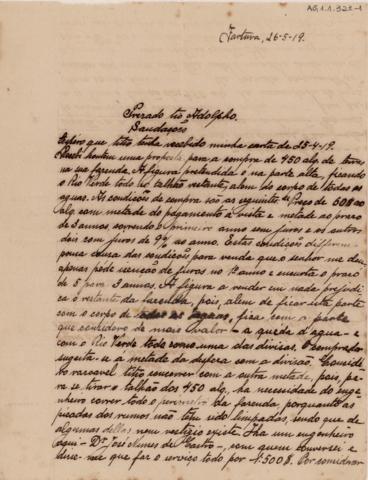 AG,1.1.922-1
Fartura, 26-5-19.
Prezado tio Adolpho.
Saudações
Espero que titio tenha recebido minha carta de 25-4-19.
Recebi hontem uma proposta para a compra de 450 alq de terra
na sua fazenda. A figura pretendida é na parte alta, ficando
o Rio Verde todo no talhão restante, alem do corpo de todas as
aguas. As condições de compra são as seguintes: Preço de 50$ ao
alq com metade do pagamento á vista e metade ao prazo
de 3 annos, correndo o primeiro anno sem juros e os outros
dois com juros de 9% ao anno. Estas condições differem
pouca cousa das condições para venda que o senhor me deu
apenas pede isenção de juros no 1º anno e encurta o prazo
de 5 para 3 annos. A figura a vender em nada prejudi-
ca o restante da fazenda, pois, alem de ficar esta parte
com o corpo de todas as aguas, fica com a parte
que considero de mais valor - a queda d'agua - e
com o Rio Verde todo como uma das divisas. O comprador
sugeita-se á metade da despeza com a divisão. Conside-
ro rasoavel titio concorrer com a outra metade, pois, pa-
ra se tirar o talhão dos 450 alq, ha necessidade do enge-
nheiro correr todo o perimetro da fazenda porquanto as
picadas dos rumos não têm sido limpadas, sendo que de
algumas dellas nem vestigio existe. Ha um engenheiro
aqui - Dr José Nunes de Castro -, com quem conversei e
disse-me que faz o serviço todo por 4:500$. Por considerar